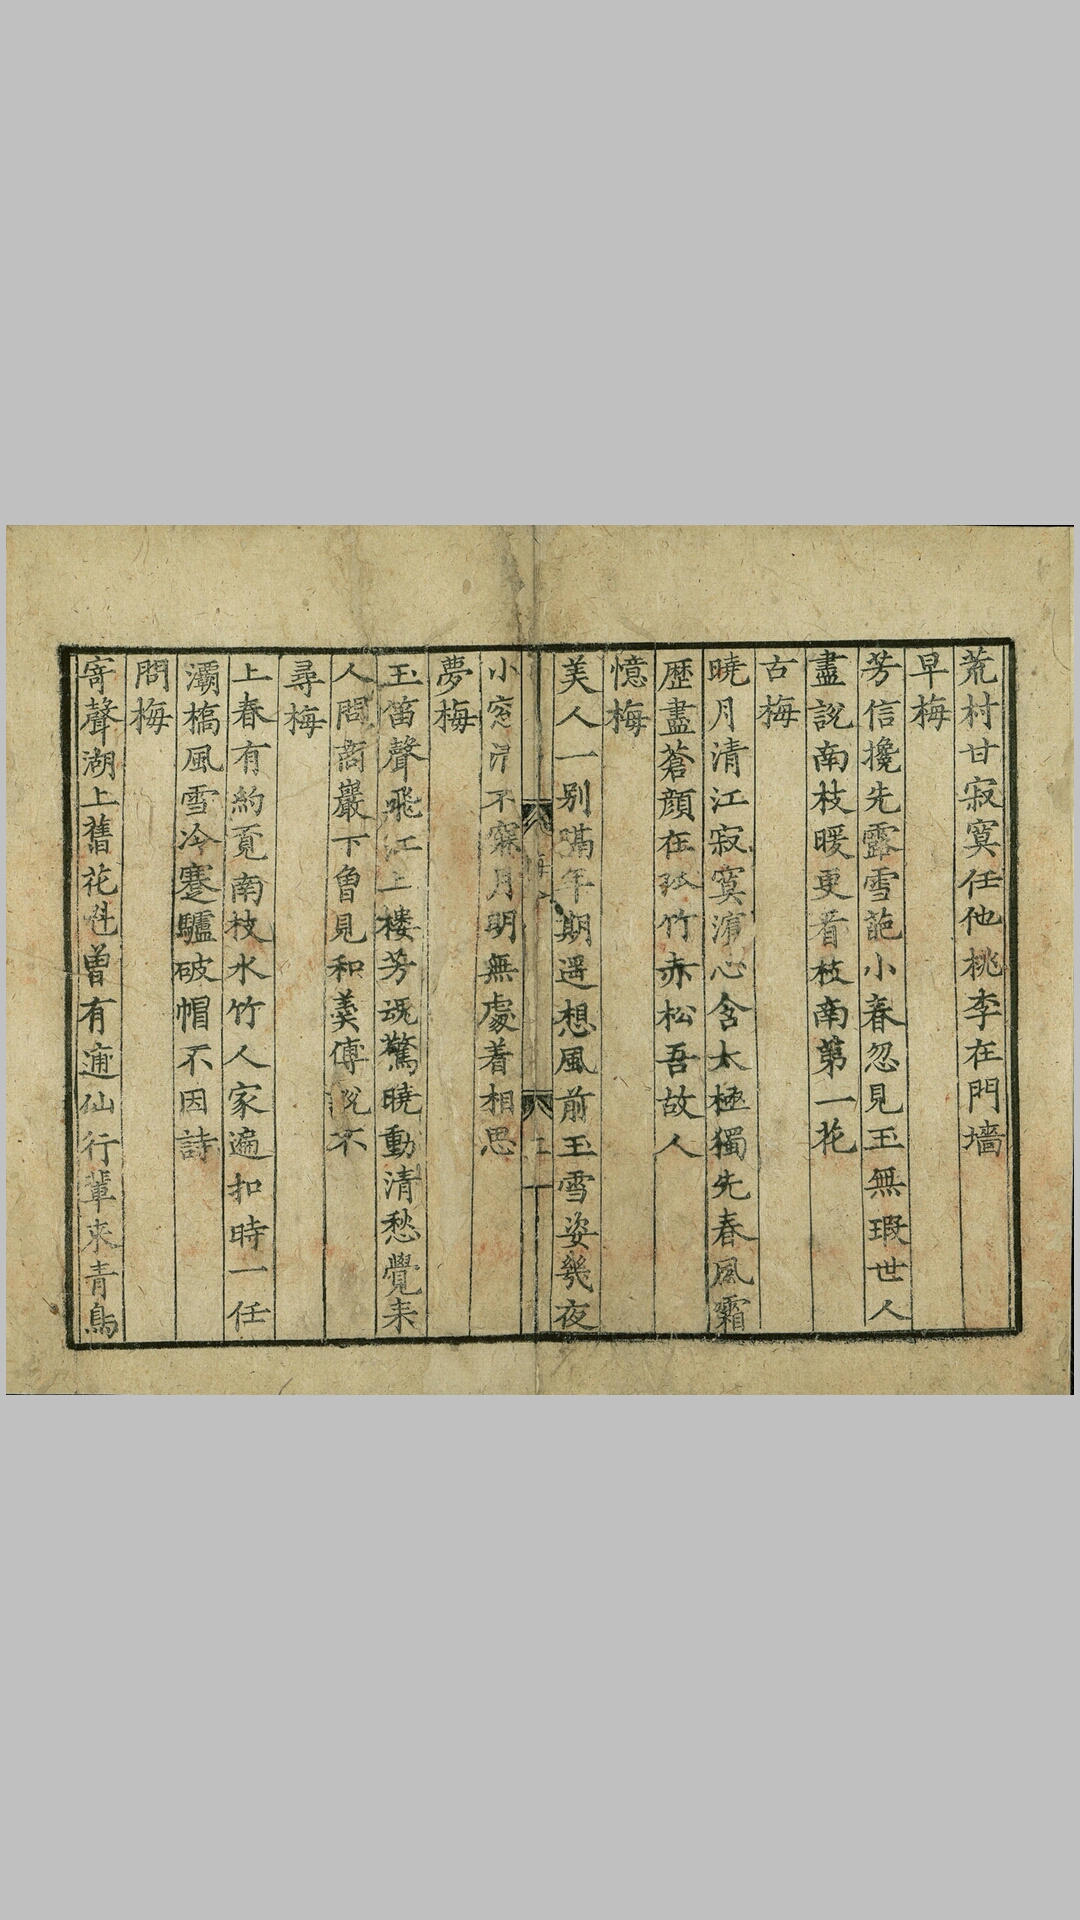 荒村甘寂寞任他桃李在門墻
早梅
芳信攙先露雪葩小春忽見玉無瑕世人
盡說南枝暖更看枝南第一花
古梅
曉月清江寂寞濵心含太極獨先春風霜
歷盡蒼顔在孤竹赤松吾故人
憶梅
美人一別隔年期遥想風前玉雪姿幾夜
小窓清不寐月明無處着相思
夢梅
玉笛聲飛江上樓芳魂驚曉動清愁覺来
人問商巖下曾見和羹傅說不
尋梅
上春有約覓南枝水竹人家遍扣時一任
灞橋風雪冷蹇驢破帽不因詩
問梅
寄聲湖上舊花魁曾有逋仙行輩來青鳥